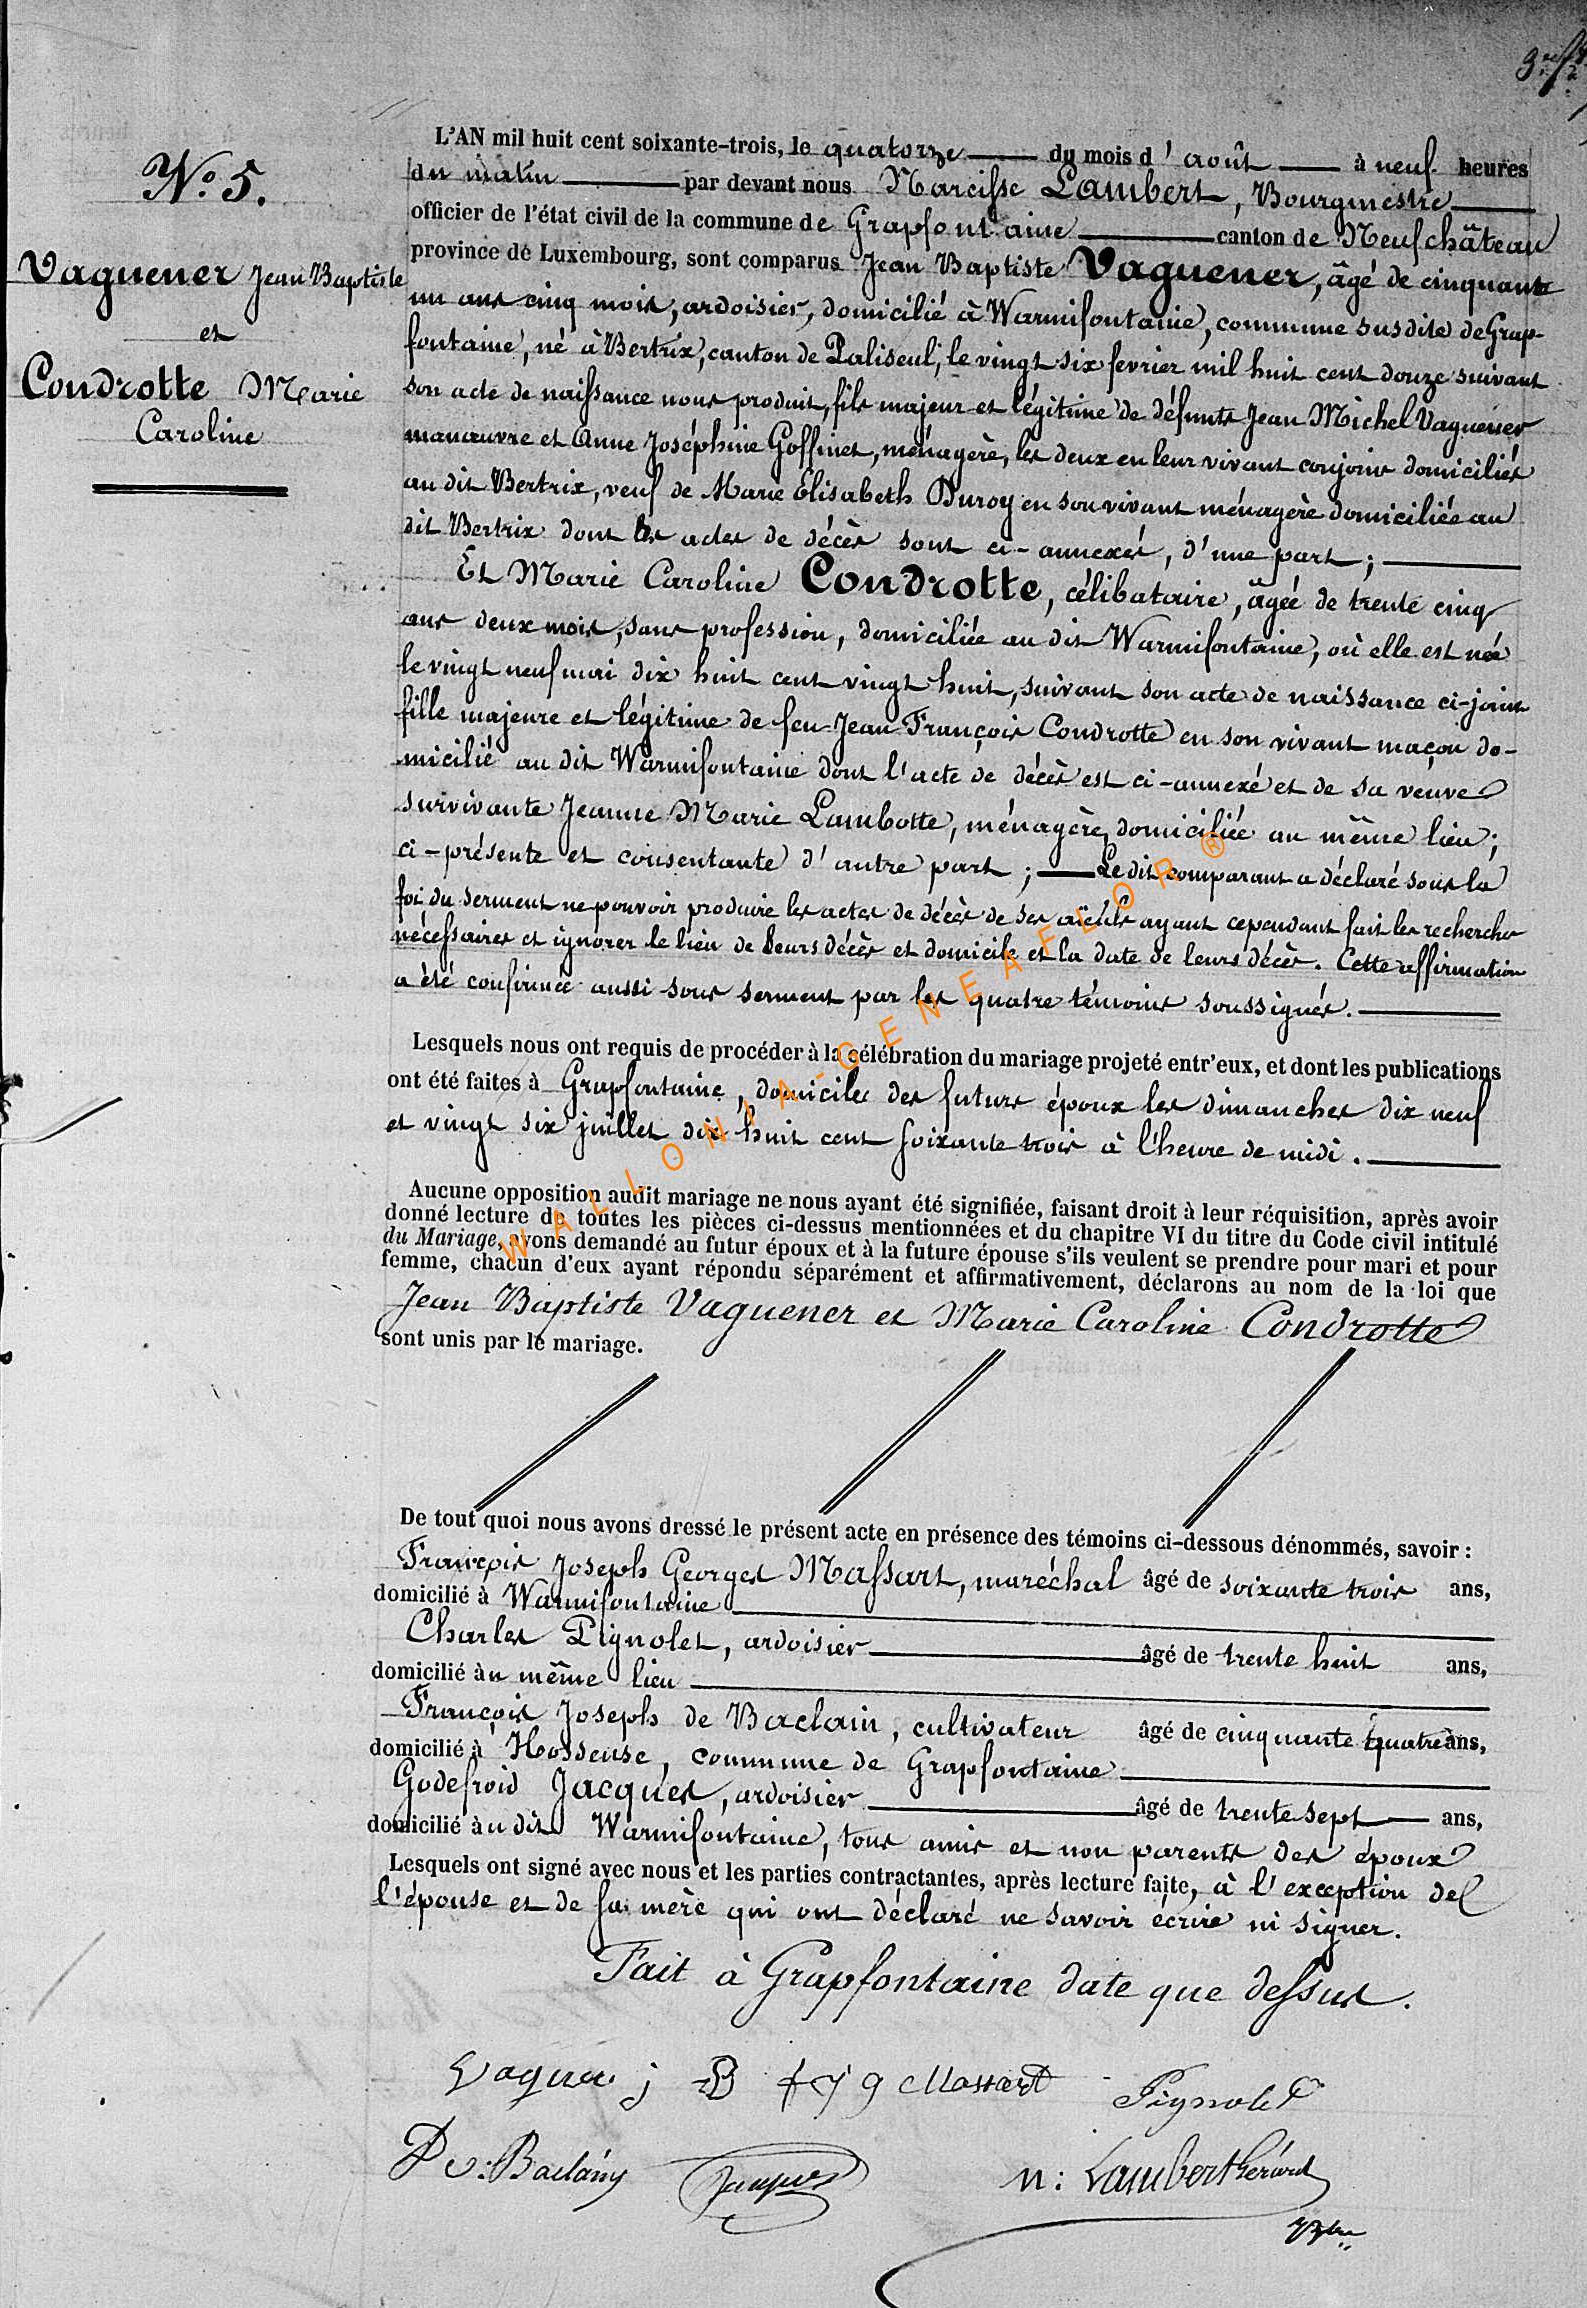 N.° 5.
Vaguener Jean Baptiste
et
Condrotte Marie
Caroline
L'AN mil huit cent soixante-trois, le quatorze du mois d'août à neuf heures
du matin par devant nous Narcisse Lambert, Bourgmestre
officier de l'état civil de la commune de Grapfontaine canton de Neufchâteau
province de Luxembourg, sont comparus Jean Baptiste Vaguener, âgé de cinquante
un ans cinq mois, ardoisier, domicilié à Warmifontaine, commune susdite de Grap-
fontaine, né à Bertrix, canton de Paliseul, le vingt six fevrier mil huit cent douze suivant
son acte de naissance nous produit, fils majeur et légitime de défunts Jean Michel Vaguener
manœuvre et Anne Joséphine Goffinet, ménagère, les deux en leur vivant conjoins domiciliés
au dit Bertrix, veuf de Marie Elisabeth Duroy en son vivant ménagère domiciliée au
dit Bertrix dont les actes de décès sont ci-annexés, d'une part;
Et Marie Caroline Condrotte, célibataire, âgée de trente cinq
ans deux mois, sans profession, domiciliée au dit Warmifontaine, où elle est née
le vingt neuf mai dix huit cent vingt huit, suivant son acte de naissance ci-joint
fille majeure et légitime de feu Jean François Condrotte en son vivant maçon do-
micilié au dit Warmifontaine dont l'acte de décès est ci-annexé et de sa veuve
survivante Jeanne Marie Lambotte, ménagère domiciliée au même lieu;
ci-présente et consentante d'autre part; Le dit comparant a déclaré sous la
foi du serment ne pouvoir produire les actes de décès de ses aïeuls ayant cependant fait les recherches
nécessaires et ignorer le lieu de leurs décès et domicile et la date de leurs décès. Cette affirmation
a été confirmée aussi sous serment par les quatre témoins soussignés.
Lesquels nous ont requis de procéder à la célébration du mariage projeté entr'eux, et dont les publications
ont été faites à Grapfontaine, domicile des futurs époux les dimanches dix neuf
et vingt six juillet dix huit cent soixante trois à l'heure de midi.
Aucune opposition audit mariage ne nous ayant été signifiée, faisant droit à leur réquisition, après avoir
donné lecture de toutes les pièces ci-dessus mentionnées et du chapitre VI du titre du Code civil intitulé
du Mariage, avons demandé au futur époux et à la future épouse s'ils veulent se prendre pour mari et pour
femme, chacun d'eux ayant répondu séparément et affirmativement, déclarons au nom de la loi que
Jean Baptiste Vaguener et Marie Caroline Condrotte
sont unis par le mariage.
De tout quoi nous avons dressé le présent acte en présence des témoins ci-dessous dénommés, savoir :
François Joseph Georges Massart, maréchal âgé de soixante trois ans,
domicilié à Warmifontaine
Charles Pignolet, ardoisier âgé de trente huit ans,
domicilié àu même lieu
François Joseph de Baclain, cultivateur âgé de cinquante quatre ans,
domicilié à Hosseuse, commune de Grapfontaine
Godefroid Jacques, ardoisier âgé de trente sept ans,
domicilié àu dit Warmifontaine, tous amis et non parents des époux
Lesquels ont signé avec nous et les parties contractantes, après lecture faite, à l'exception de
l'épouse et de sa mère qui ont déclaré ne savoir écrire ni signer.
Fait à Grapfontaine date que dessus.
j B f j g Massart Pignolet
Jacques n: Lambert Gérard
WALLONIA-GENEAFLOR®